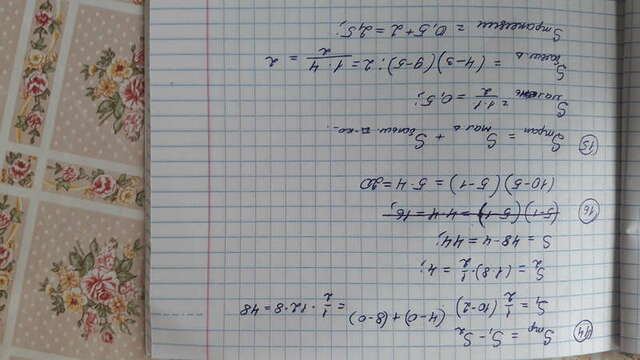 14) Sтр = S₁ - S₂
S₁ = 1/2 (10-2) (4-0)+(8-0) = 1/2 · 12 · 8 = 48
S₂ = (1·8) · 1/2 = 4;
S = 48 - 4 = 44;
16) (5-1)(5-1) = 4·4 = 16;
(10-5)(5-1) = 5·4 = 20
15) Sтрап = Sмал.ь + Sбольш.
Sмален = 1·1/2 = 0,5;
Sбольш.ь = (4-3)(9-5) : 2 = 1·4/2 = 2
Sтрапеции = 0,5 + 2 = 2,5;